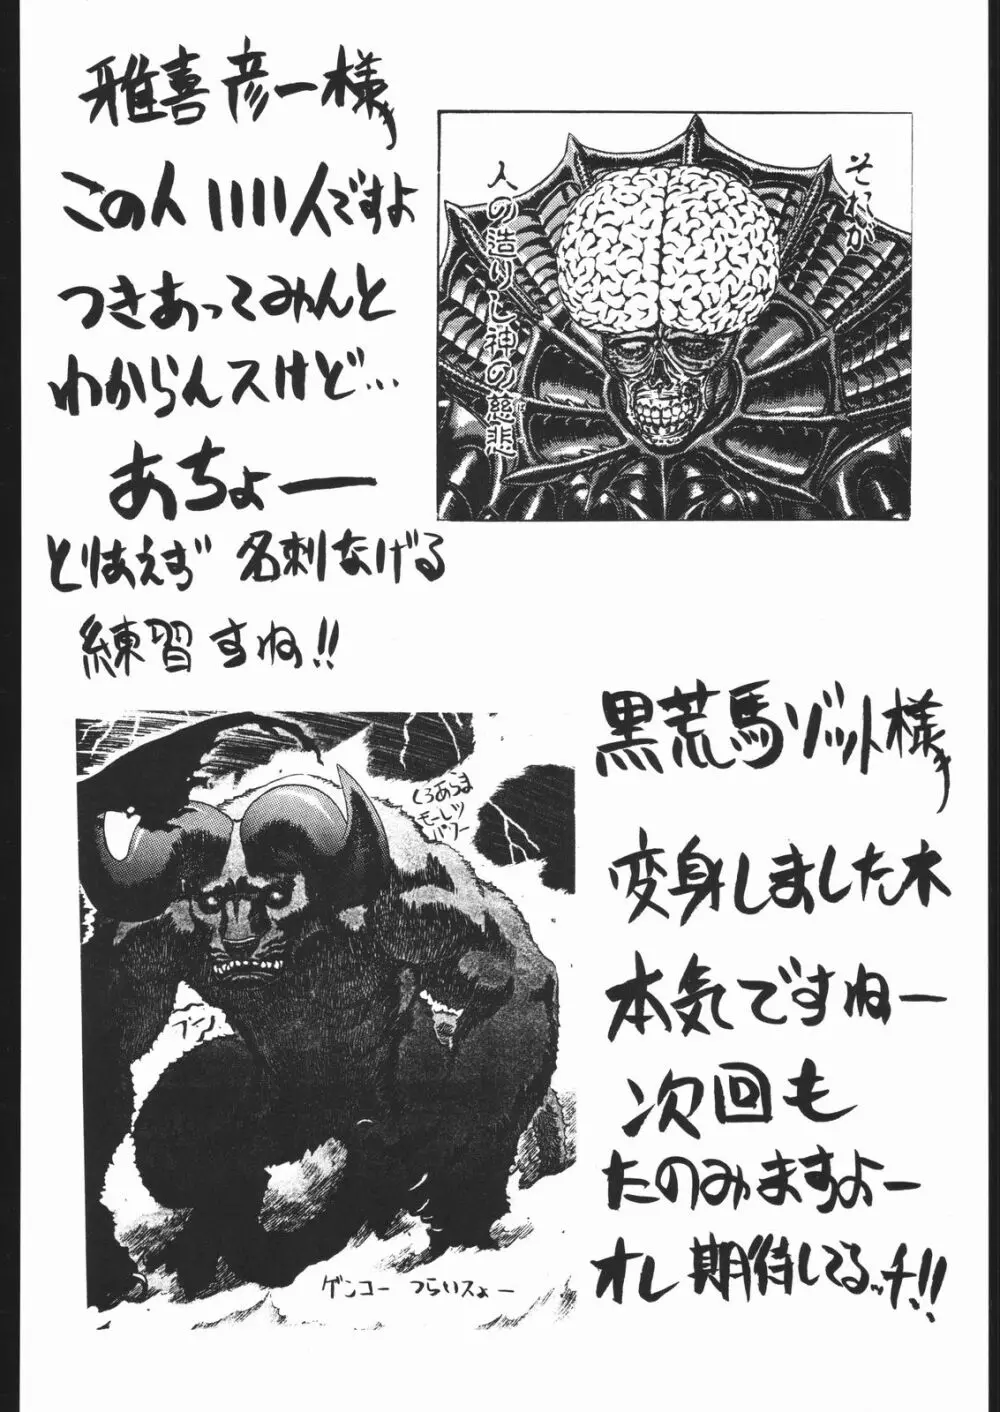 雅喜彦一様
この人いい人ですよ
つきあってみんと
わからんスけど…
あちょー
とりあえず 名刺なげる
練習すね!!
それが
人の造りし神の慈悲
黒荒馬ゾット様
変身しました木
本気ですねー
次回も
たのみますよー
オレ期待してるッチ!!
くろあらま
モーレツ
パワー
ブーン
ゲンコー つらいスょー